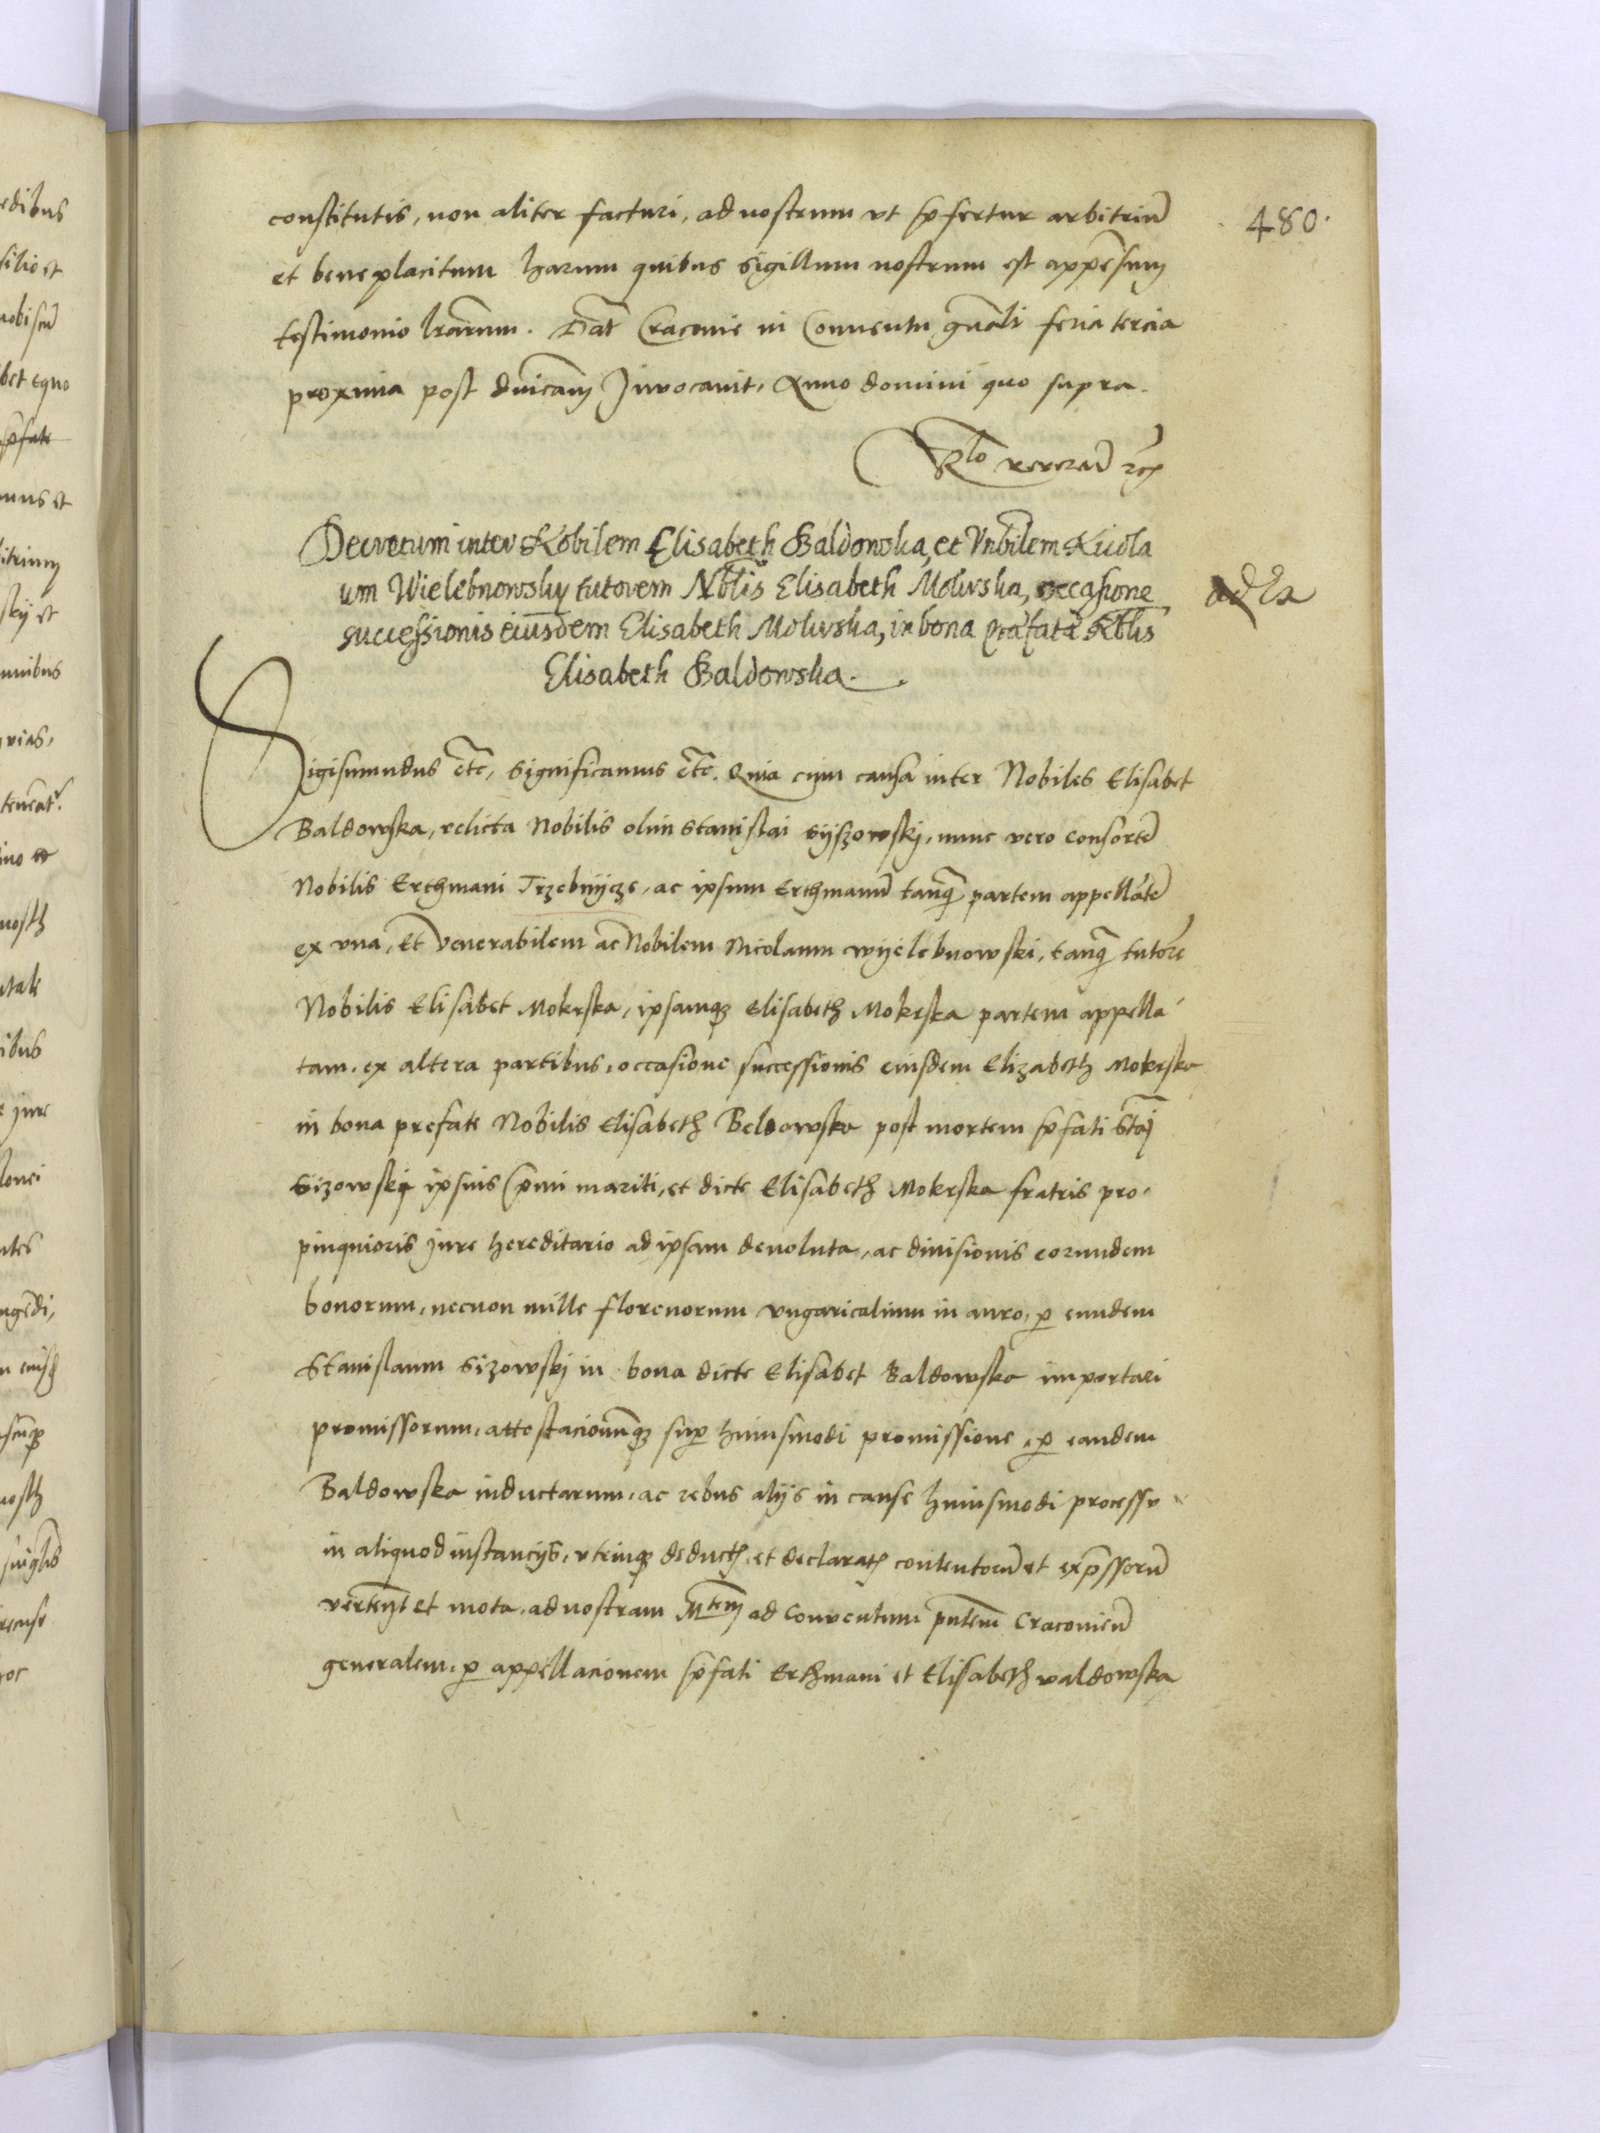 480.
constitutis, non aliter facturi, ad nostrum vt p̄fertur arbitriũ
et beneplacitum harum quibus sigillum nostrum est appēsum
testimonio lrārum. Dat̄ Cracouie in Conuentu gn̄ali feria tercia
proxima post dnīcam Inuocauit, Anno domini quo supra.
Rlo
Decretum inter Nobilem Elisabeth Baldowska, et Vnbilem Nicola
um Wielebnowsky tutorem Nblis Elisabeth Mokrska, occasione
successionis eiusdem Elisabeth Mokrska, in bona præfatæ Nblis
Elisabeth Baldowska.
Sigismundus etc̄, significamus etc̄. Quia cum causa inter Nobiles Elisabet
Baldowska, relicta Nobilis olim Stanislai Syszowskj, nunc vero consortẽ
Nobilis Erthmani Trzebnÿcze, ac ipsum Erthmanũ tanq̃ partem appellātē
ex vna, Et Venerabilem ac Nobilem Nicolaum wÿelebnowski, tanq̃ tutorē
Nobilis Elisabet Mokrska, ipsamq3 Elisabeth Mokrska partem appella-
tam, ex altera partibus, occasione successionis eiusdem Elizabeth Mokrska
in bona prefate Nobilis Elisabeth Beldowska post mortem p̄fati Stai
Sizowskj ipsius p̄mi mariti, et dicte Elisabeth Mokrska fratris pro-
pinquioris jure hereditario ad ipsam deuoluta, ac diuisionis eorundem
bonorum, necnon mille florenorum vngaricalium in auro, p̱ eundem
Stanislaum Sizowskj in bona dicte Elisabet Baldowska importari
promissorum, attestacionũq3 sup̱ huiusmodi promissione, p̱ eandem
Baldowska inductarum, ac rebus alijs in cause huiusmodi processu
in aliquod instancijs, vtrinq3 deduct, et declarat, contentorũ et exp̄ssorũ
verten̄t et mota, ad nostram Mtem ad Conuentum pn̄tem Cracovien̄
generalem, p̱ appellacionem p̄fati Erthmani et Elisabeth valdowska